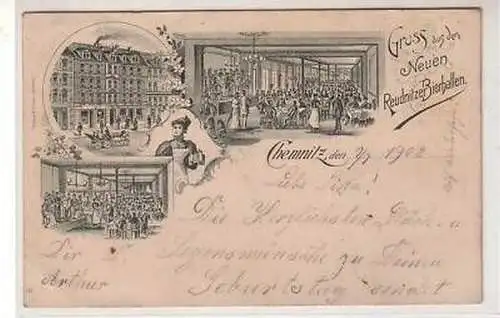 Gruss aus den
Neuen
Reudnitzer Bierhallen.
Chemnitz, den 7/7 1902
Liebe
Die Herzlichsten Glück- u
Segenswünsche zu Deinem
Geburtstag sendet
Dir
Arthur